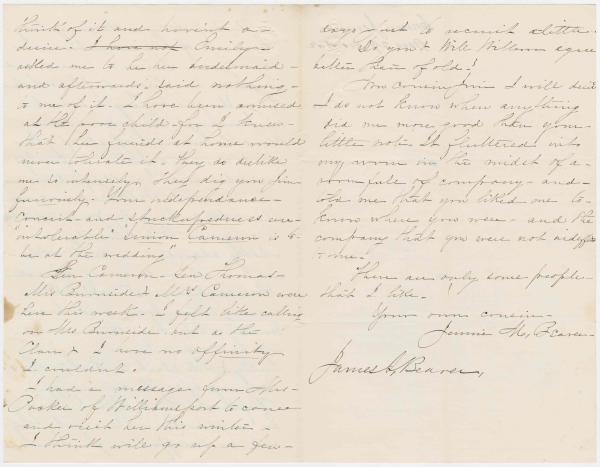 think of it and haven't a-
desire. I have not Emily-
asked me to be her bridesmaid-
and afterwards said nothing-
to me of it. I have been amused
at the poor child- for I knew-
that her friends at home would
never tolerate it. They do dislike
me so intensely. They dig you Jim
furiously. Your independence-
conceit- and stuckupedness are-
"intolerable" Simon Cameron is to-
be at the wedding"
Gen Cameron- Gen Thomas-
Mrs Burnside & Mrs Cameron were
here this week. I felt like calling
on Mrs Burnside but as the
Clan & I were no affinity
I couldn't.
I had a message from Mrs-
Packer of Williamsport to come
and visit her this winter-
I think will go up a few-
days just to recruit a little-
Do you & Will Wilson agree
better than of old?
Now cousin Jim I will desist
I do not know when anything
did me more good than your
little note. It fluttered into
my room in the midst of a-
room full of company- and-
told me that you liked me to-
know where you were- and the
company that you were not
to me.
There are only some people-
that I like-
Your own cousin-
Jennie M. Beaver-
James A. Beaver,